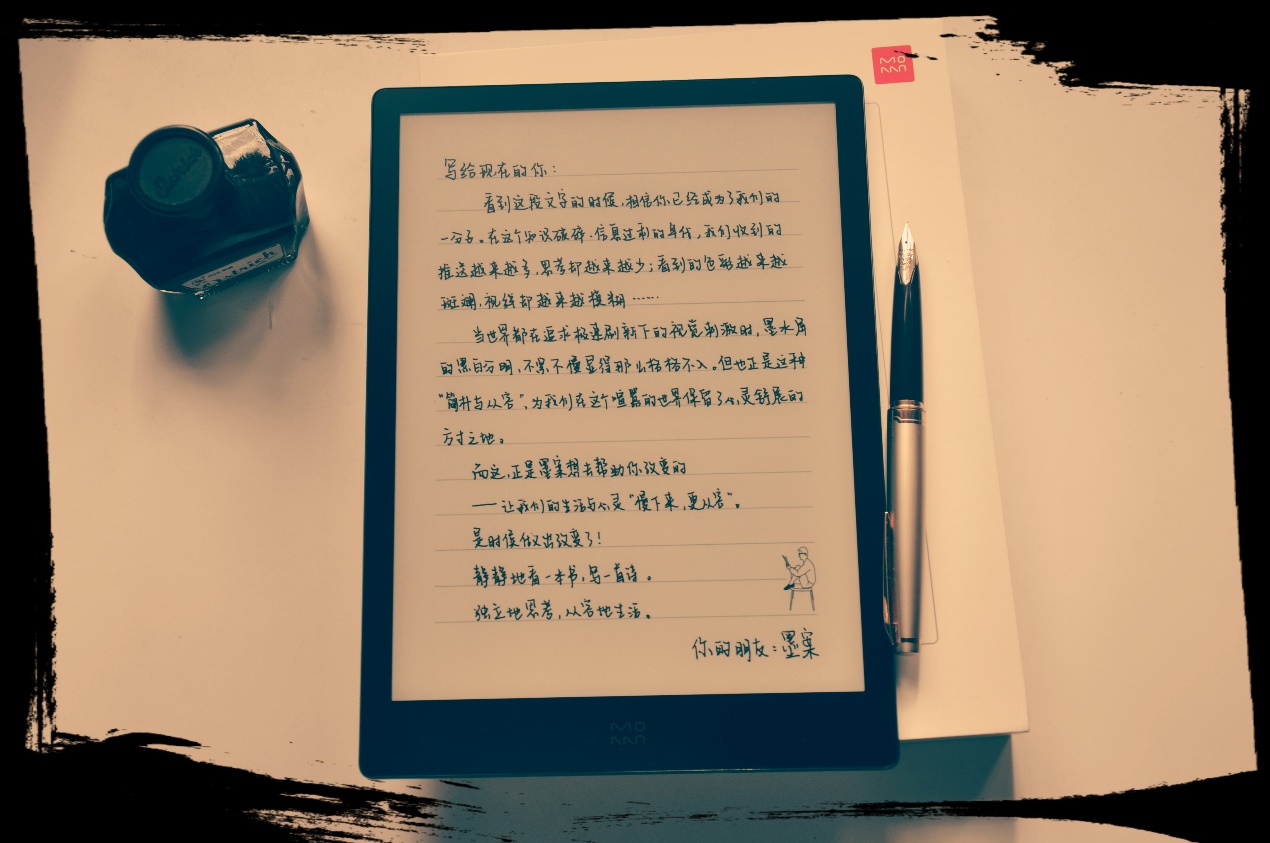 写给现在的你：
看到这段文字的时候，相信你已经成为了我们的
一分子。在这个知识破碎、信息过剩的年代，我们收到的
推送越来越多，思考却越来越少；看到的色彩越来越
斑斓，视线却越来越模糊……
当世界都在追求极速刷新下的视觉刺激时，墨水屏
的黑白分明，不紧不慢显得那么格格不入。但也正是这种
“简朴与从容”，为我们在这个喧嚣的世界保留了心灵舒展的
方寸之地。
而这，正是墨案想去帮助你改变的
——让我们的生活与心灵“慢下来，更从容”。
是时候做出改变了！
静静地看一本书，写一首诗。
独立地思考，从容地生活。
你的朋友：墨案